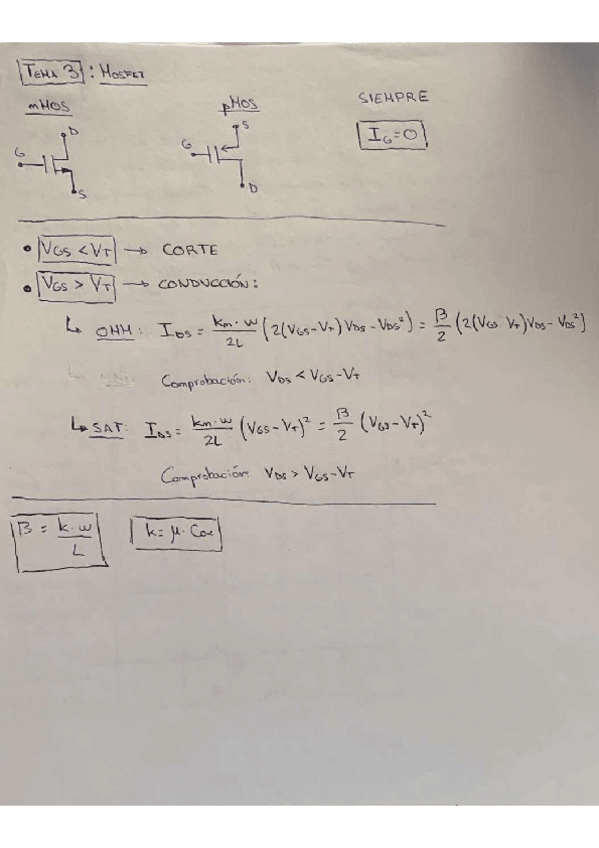 TEMA 3 : MOSFET
nMOS pMOS SIEMPRE
G D S G S D I_G = 0
• V_GS < V_T → CORTE
• V_GS > V_T → CONDUCCIÓN:
↳ OHM: I_DS = k_n · w / 2L (2(V_GS - V_T) V_DS - V_DS²) = β / 2 (2(V_GS V_T) V_DS - V_DS²)
Comprobación: V_DS < V_GS - V_T
↳ SAT: I_DS = k_n · w / 2L (V_GS - V_T)² = β / 2 (V_GS - V_T)²
Comprobación: V_DS > V_GS - V_T
β = k · w / L k = μ · Cox